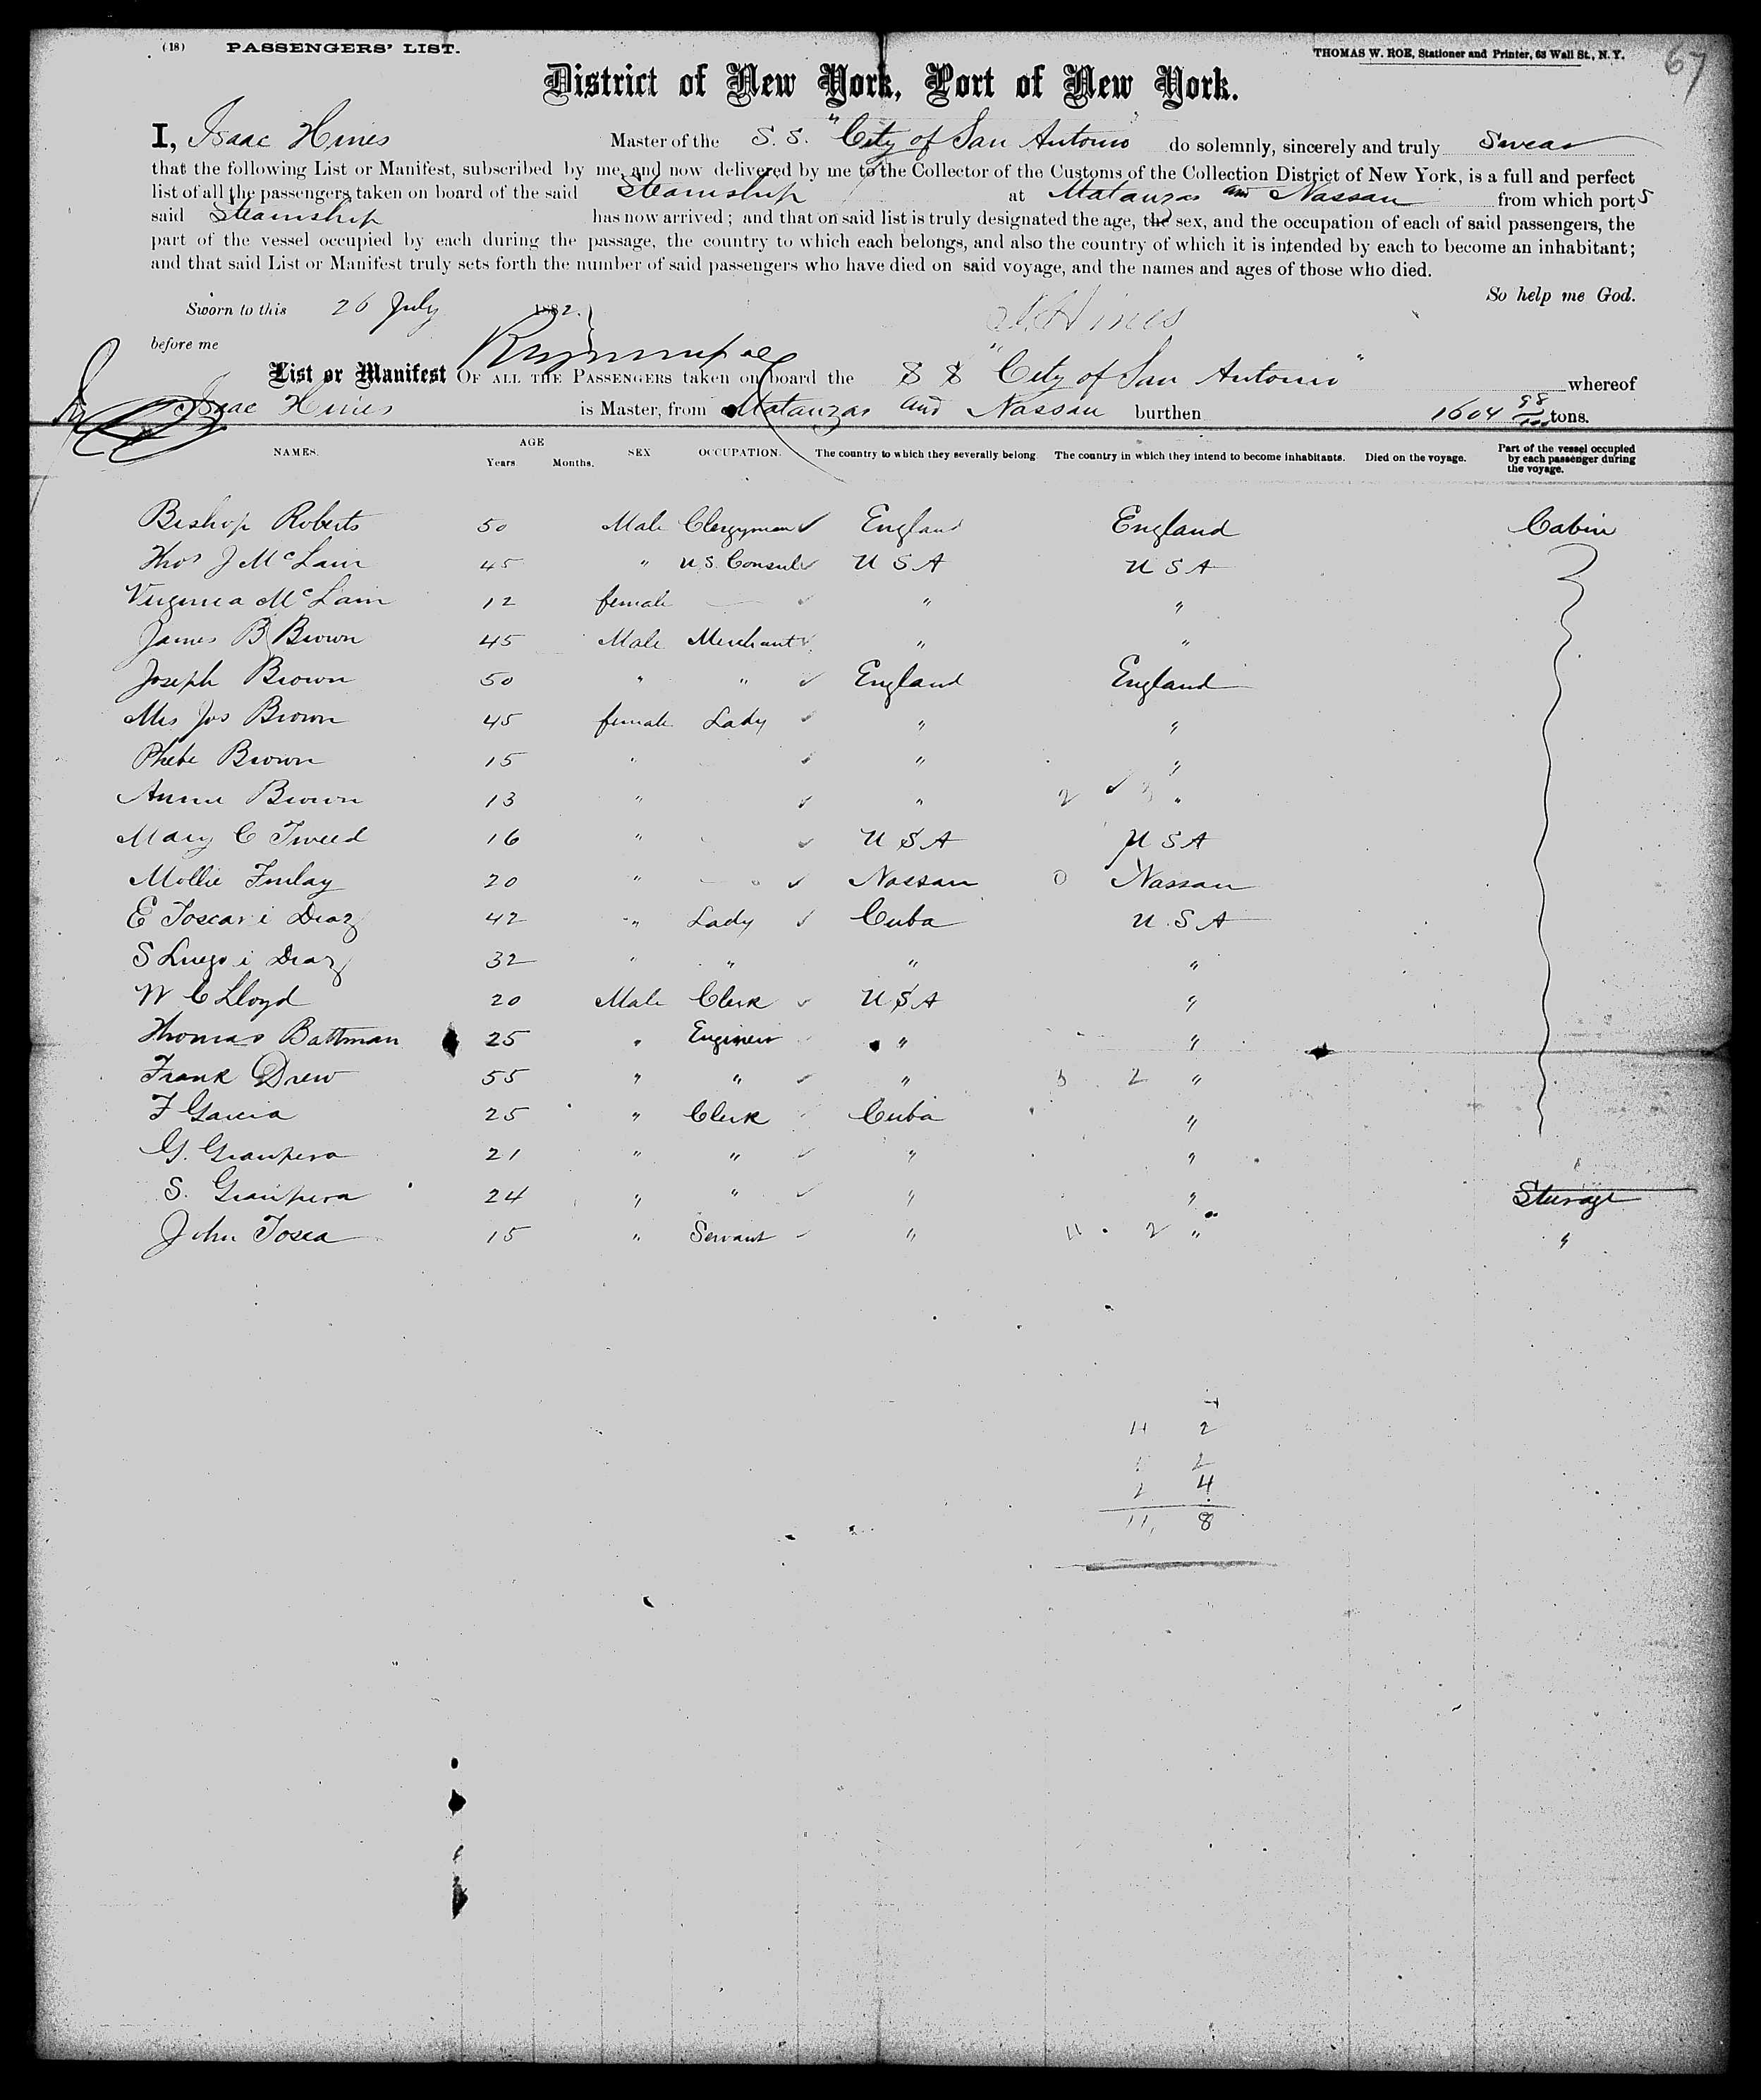 (18) PASSENGERS' LIST. THOMAS W. ROE, Stationer and Printer, 63 Wall St., N.Y. 67
District of New York, Port of New York.
I, Isaac Hines Master of the S. S. "City of San Antonio" do solemnly, sincerely and truly Swear
that the following List or Manifest, subscribed by me, and now delivered by me to the Collector of the Customs of the Collection District of New York, is a full and perfect
list of all the passengers taken on board of the said Steamship at Matanzas and Nassau from which port s
said Steamship has now arrived; and that on said list is truly designated the age, the sex, and the occupation of each of said passengers, the
part of the vessel occupied by each during the passage, the country to which each belongs, and also the country of which it is intended by each to become an inhabitant;
and that said List or Manifest truly sets forth the number of said passengers who have died on said voyage, and the names and ages of those who died.
So help me God.
Sworn to this 26 July 1882. Hines
before me
List or Manifest OF ALL THE PASSENGERS taken on board the S S "City of San Antonio" whereof
Isaac Hines is Master, from Matanzas and Nassau burthen 1604 98/100 tons.
NAMES. AGE Years Months. SEX OCCUPATION. The country to which they severally belong. The country in which they intend to become inhabitants. Died on the voyage. Part of the vessel occupied by each passenger during the voyage.
Bishop Roberts 50 Male Clergyman England England Cabin
Thos J McLain 45 " U.S. Consul U S A U S A
Virginia McLain 12 female — " "
James B Brown 45 Male Merchant " "
Joseph Brown 50 " " England England
Mrs Jos Brown 45 female Lady " "
Phebe Brown 15 " " "
Annie Brown 13 " " 2 "
Mary C Tweed 16 " U S A U S A
Mollie Finlay 20 " — Nassau 0 Nassau
E Toscar i Diaz 42 " Lady Cuba U.S A
S Luego i Diaz 32 " " " "
W C Lloyd 20 Male Clerk U S A "
Thomas Battman 25 " Engineer " "
Frank Drew 55 " " " 2 "
F Garcia 25 " Clerk Cuba "
G. Granpera 21 " " " "
S. Granpera 24 " " " " Steerage
John Tosca 15 " Servant " 2 " "
11 2
2
2 4
11, 8